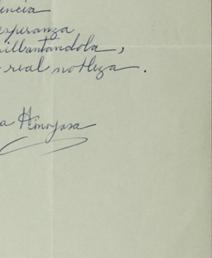 encia
esperanza
brillantándola,
real nobleza.
a Hinojosa